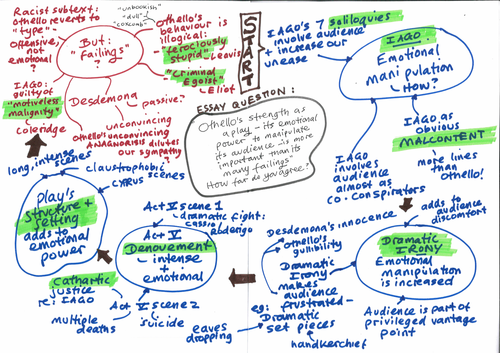 Racist subtext:
Othello reverts to
"type"-
offensive,
not emotional
?
"unbookish"
"dull"
"coxcomb"
But:
"Failings"
?
Othello's
behaviour is
illogical:
"ferociously
stupid" Leavis
"Criminal
Egoist"
Eliot
IAGO:
guilty of
"motiveless
malignity"
Coleridge
Desdemona
passive?
unconvincing
Othello's unconvincing
ANAGNORISIS dilutes
our sympathy?
START
IAGO'S 7 soliloquies
involve audience
+ increase our
unease
IAGO
Emotional
manipulation
- How?
IAGO as
obvious
MALCONTENT
more lines
than
Othello!
IAGO
involves
audience
almost as
co-conspirators
ESSAY QUESTION:
Othello's strength as
a play - its emotional
power to manipulate
its audience is more
important than its
many failings"
How far do you agree?
adds to
audience
discomfort
Dramatic
IRONY
Emotional
manipulation
is increased
Audience is part of
privileged vantage
point
Desdemona's innocence
Othello's
gullibility
Dramatic
Irony
makes
audience
frustrated-
eg: Dramatic
set pieces
eaves
dropping
handkerchief
Act V scene 1
- dramatic fight:
cassio
Roderigo
Act V
Denouement
- intense
+ emotional
Act V scene 2
- suicide
multiple
deaths
Cathartic
justice
re: IAGO
long, intense
scenes
claustrophobic
CYPRUS scenes
Play's
Structure +
Setting
adds to
emotional
power